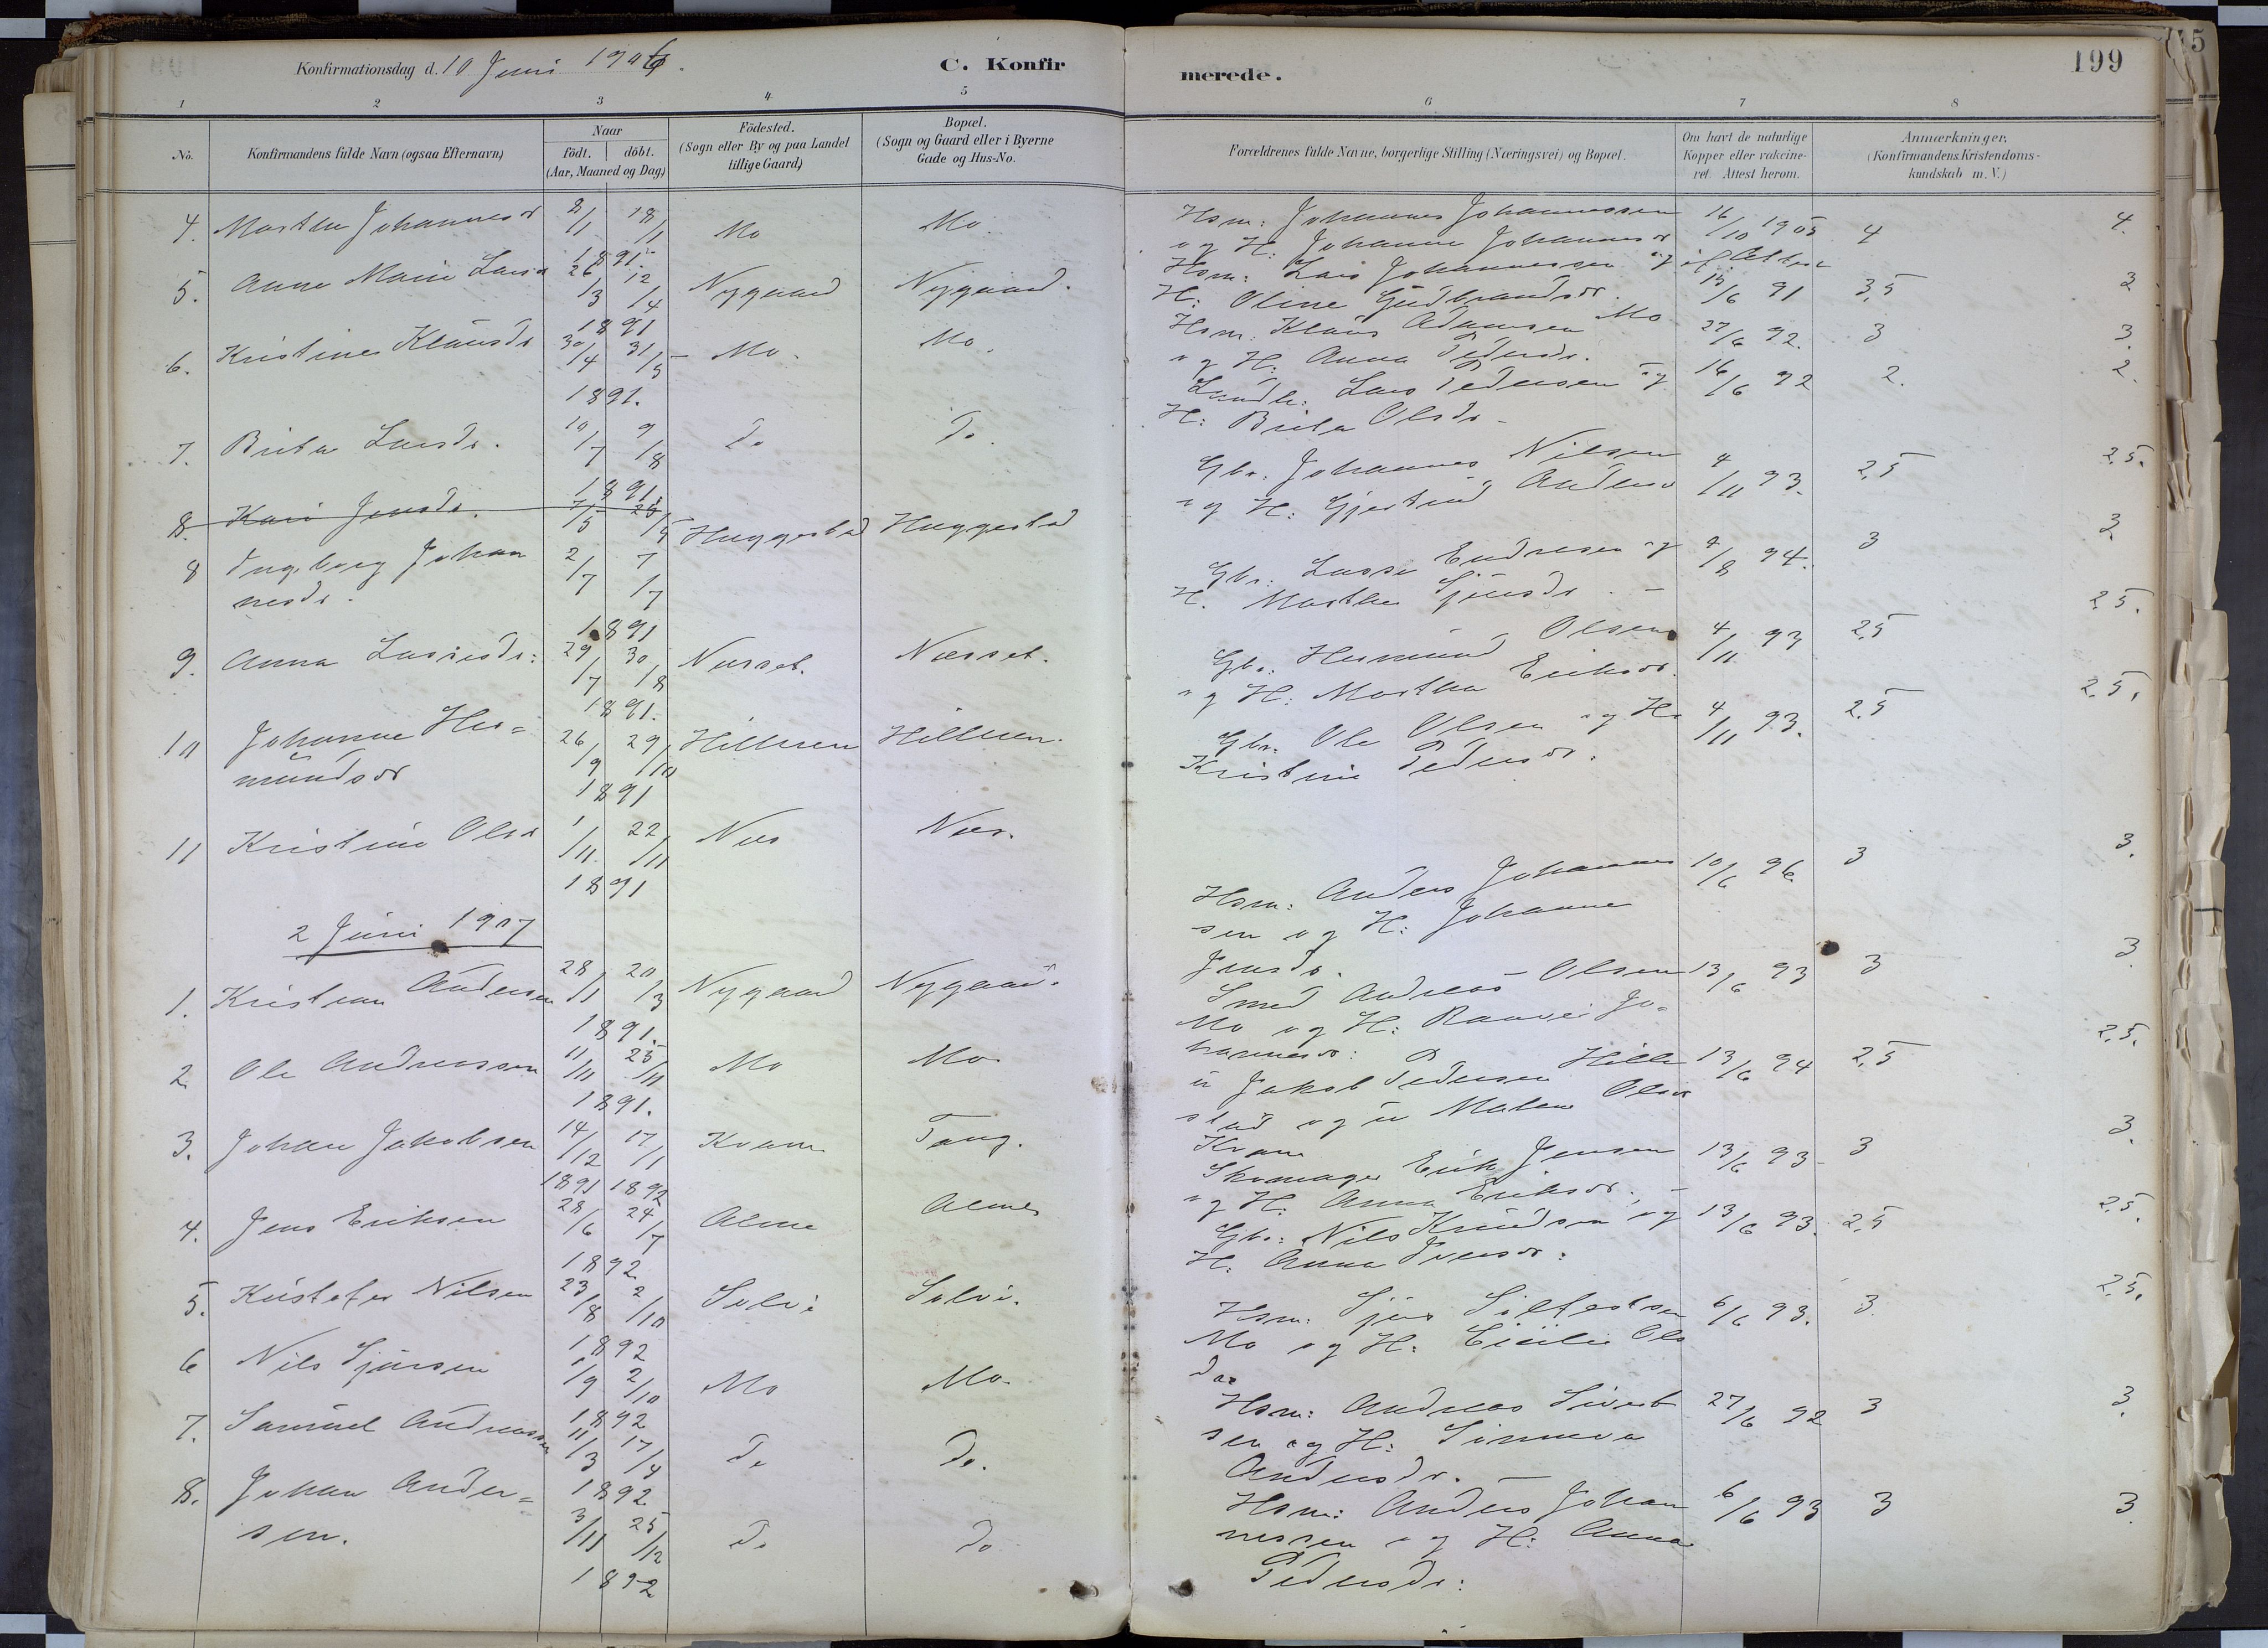 Konfirmationsdag d. 10 Juni 1906.
C. Konfirmerede.
199
1 2 3 4 5 6 7 8
No.
Konfirmandens fulde Navn (ogsaa Efternavn)
Naar
födt. döbt.
(Aar, Maaned og Dag)
Födested.
(Sogn eller By og paa Landet
tillige Gaard)
Bopæl.
(Sogn og Gaard eller i Byerne
Gade og Hus-No.
Forældrenes fulde Navne, borgerlige Stilling (Næringsvei) og Bopæl.
Om havt de naturlige
Kopper eller vakcine-
ret. Attest herom.
Anmærkninger.
(Konfirmandens Kristendoms-
kundskab m. V.)
4. Marthe Johannesdr 8/1 18/1 Mo Mo.
1891
5. Anne Marie Larsdr 26/3 12/4 Nygaard Nygaard.
1891
6. Kristine Klausdr 30/4 31/5 Mo. Mo.
1891.
7. Brita Larsdr. 10/7 9/8 Do Do.
1891
8. Kari Jensdr.
8 Ingeborg Johan 2/7 7/7 Huggestad Huggestad
nesdr.
1891
9. Anna Lassesdr: 29/7 30/8 Næsset. Næsset.
1891.
10 Johanne Her= 26/9 29/10 Hilleren Hilleren.
mundsdr
1891
11 Kristine Olsdr 1/11 22/11 Næs Næs.
1891
2 Juni 1907
1. Kristian Andersen 28/1 20/3 Nygaard Nygaard.
1891.
2 Ole Andreassen 11/11 25/11 Mo Mo
1891.
3. Johan Jakobsen 14/12 17/1 Kvam Tang.
1891 1892
4. Jens Eriksen 28/6 24/7 Alme Alme
1892
5. Kristofer Nilsen 23/8 2/10 Solvi Solvi.
1892
6 Nils Sjursen 1/9 2/10 Mo Mo.
1892
7. Samuel Andreassen 11/3 17/4 Do Do.
1892
8. Johan Ander= 3/11 25/12 Do Do
sen.
1892
Hsm: Johannes Johannessen 16/10 1905 4 4.
og H: Johanne Johannesdr
Hsm: Lars Johannessen og
H: Oline Gudbrandsdr. 15/6 91 3,5 3
Hsm. Klaus Adamsen Mo 27/6 92. 3 3.
og H: Anna Pedersdr.
Lars Pedersen og 16/6 92 2. 2.
H: Brita Olsdr
Gbr. Johannes Nilsen 4/11 93. 2,5 2,5.
og H: Gjertrud Andersdr
Gbr: Lasse Endresen og 4/8 94. 3 3
H. Marthe Sjursdr.
Gbr. Hermund Olsen 4/11 93 2,5 2,5.
og H: Martha Eriksdr.
Gbr. Ole Olsen og H: 4/11 93. 2,5 2,5.
Kristine Pedersdr.
Hsm: Anders Johannes 10/6 96 3 3.
sen og H: Johanne
Jensdr.
Smed Andreas Olsen 13/6 93 3 3
Mo og H: Ranvei Jo=
hannesdr:
u Jakob Pedersen Hille 13/6 94 2,5 2,5.
stad og u Malene Olsdr
Kvam
Skomager Erik Jensen 13/6 93 3 3.
og H: Anna Eriksdr.
Gbr: Nils Knudsen og 13/6 93. 2,5 2,5.
H: Anna Iversdr:
Hsm. Sjur Silfestsen 6/6 93. 3. 2,5.
Mo og H: Cicilie Ols
dr
Hsm: Andreas Sivert 27/6 92 3 3.
sen og H: Sinneva
Andersdr.
Hsm: Anders Johan 6/6 93 3 3.
nessen og H: Anna
Pedersdr: